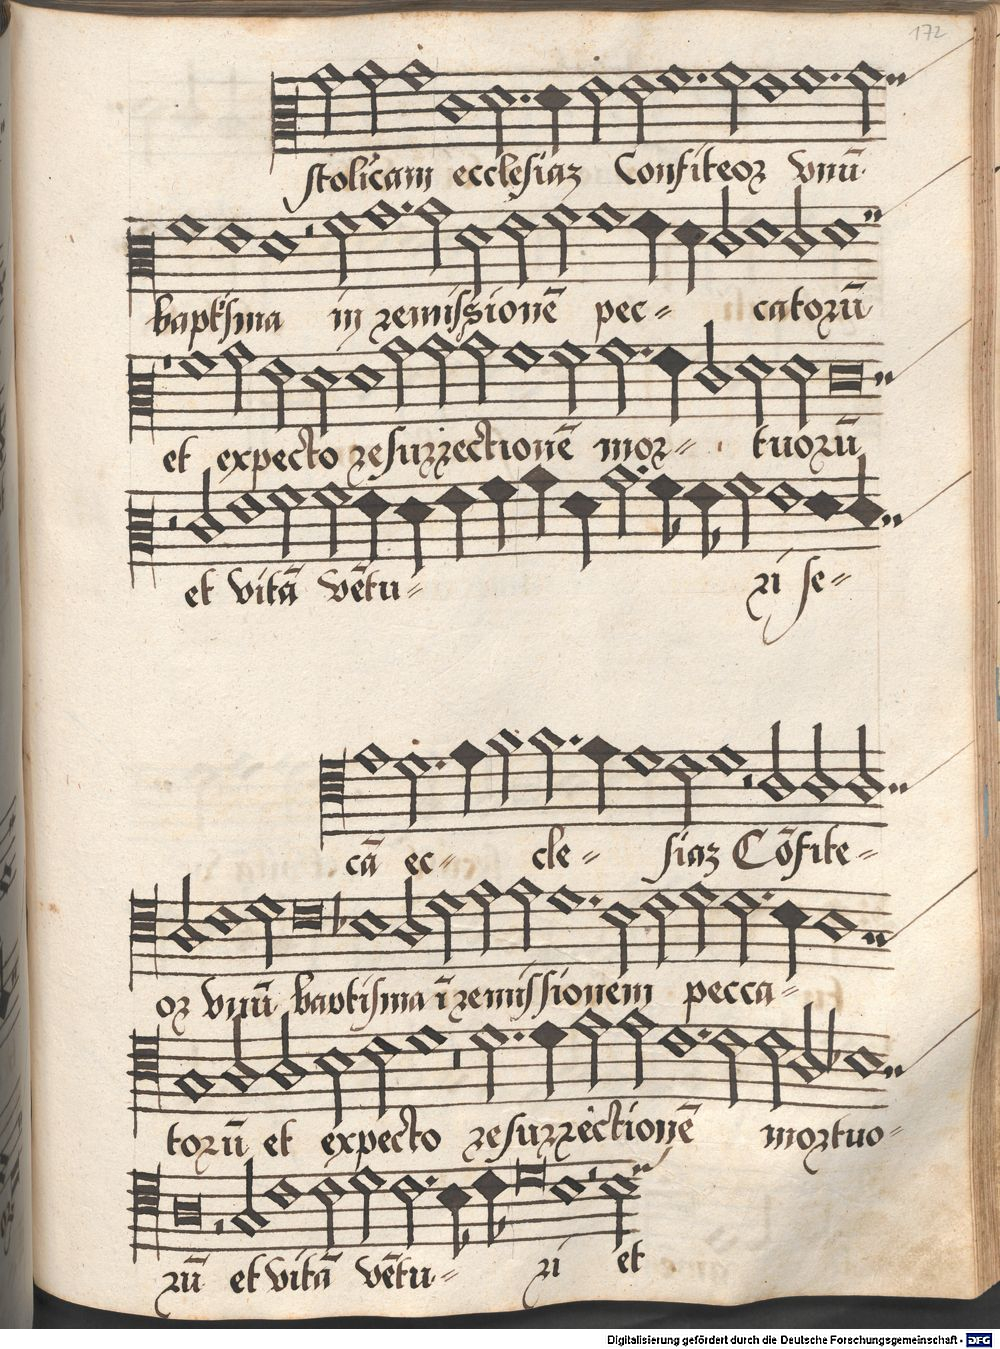 172
stolicam ecclesiaz Confiteoz vnū
baptisma in remissionē pec= catorū
et expecto resurrectionē mor= tuorū
et vitā vētu= ri se=
cā ec= cle= siaz Cōfite=
oz vnū baptisma ī remissionem pecca=
torū et expecto resurrectionē mortuo=
rū et vitā vētu= ri et
Digitalisierung gefördert durch die Deutsche Forschungsgemeinschaft - DFG